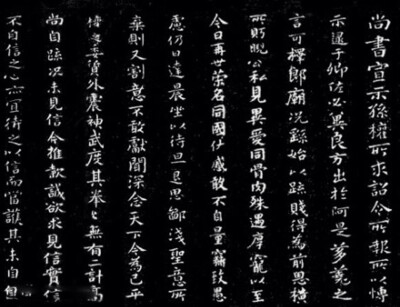 尚書宣示孫權所求詔令所報所以博
示逮于卿佐必冀良方出於阿是芻蕘之
言可擇郎廟況繇始以疏賤得為前恩橫
所眄睨公私見異愛同骨肉殊遇厚寵以至
今日再世榮名同國休慼敢不自量竊致愚
慮仍日達晨坐以待旦退思鄙淺聖意所
棄則又割意不敢獻聞深念天下今為已平
權之委質外震神武度其拳拳無有二計高
尚自疏況未見信今推款誠欲求見信實懷
不自信之心亦宜待之以信而當護其未自信